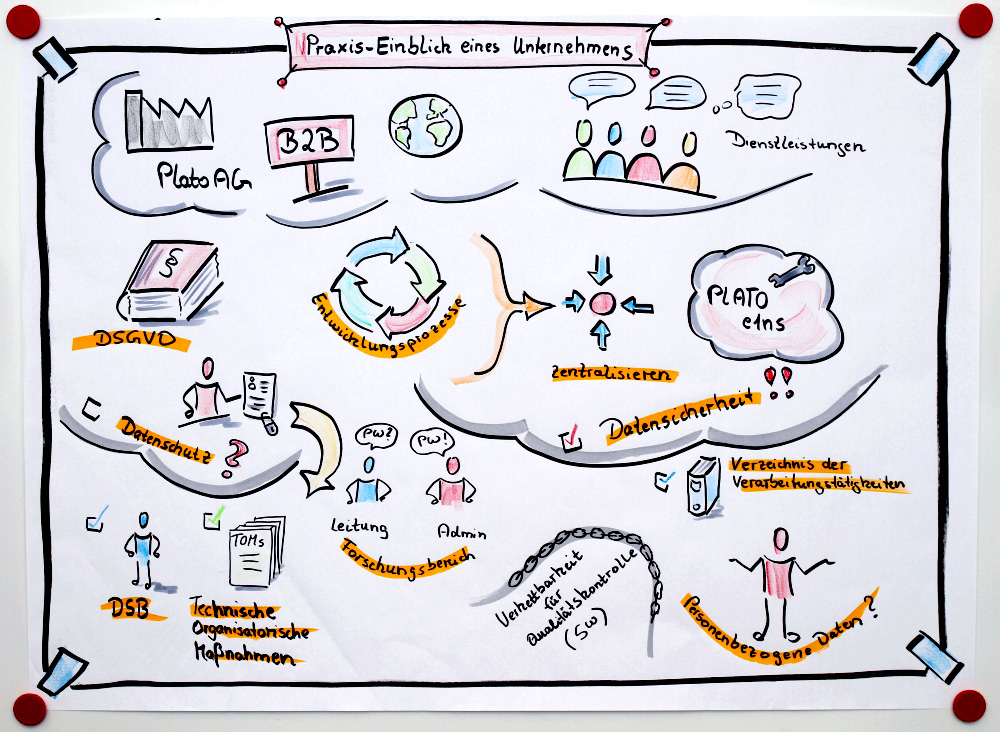 Praxis-Einblick eines Unternehmens
Plato AG
B2B
Dienstleistungen
§
DSGVO
Entwicklungsprozesse
zentralisieren
PLATO
e1ns
Datenschutz
?
Datensicherheit
!!
PW?
PW!
Leitung
Admin
Forschungsbereich
Verzeichnis der
Verarbeitungstätigkeiten
DSB
TOMs
Technische
Organisatorische
Maßnahmen
Verkettbarkeit
für
Qualitätskontrolle
(SW)
Personenbezogene Daten?